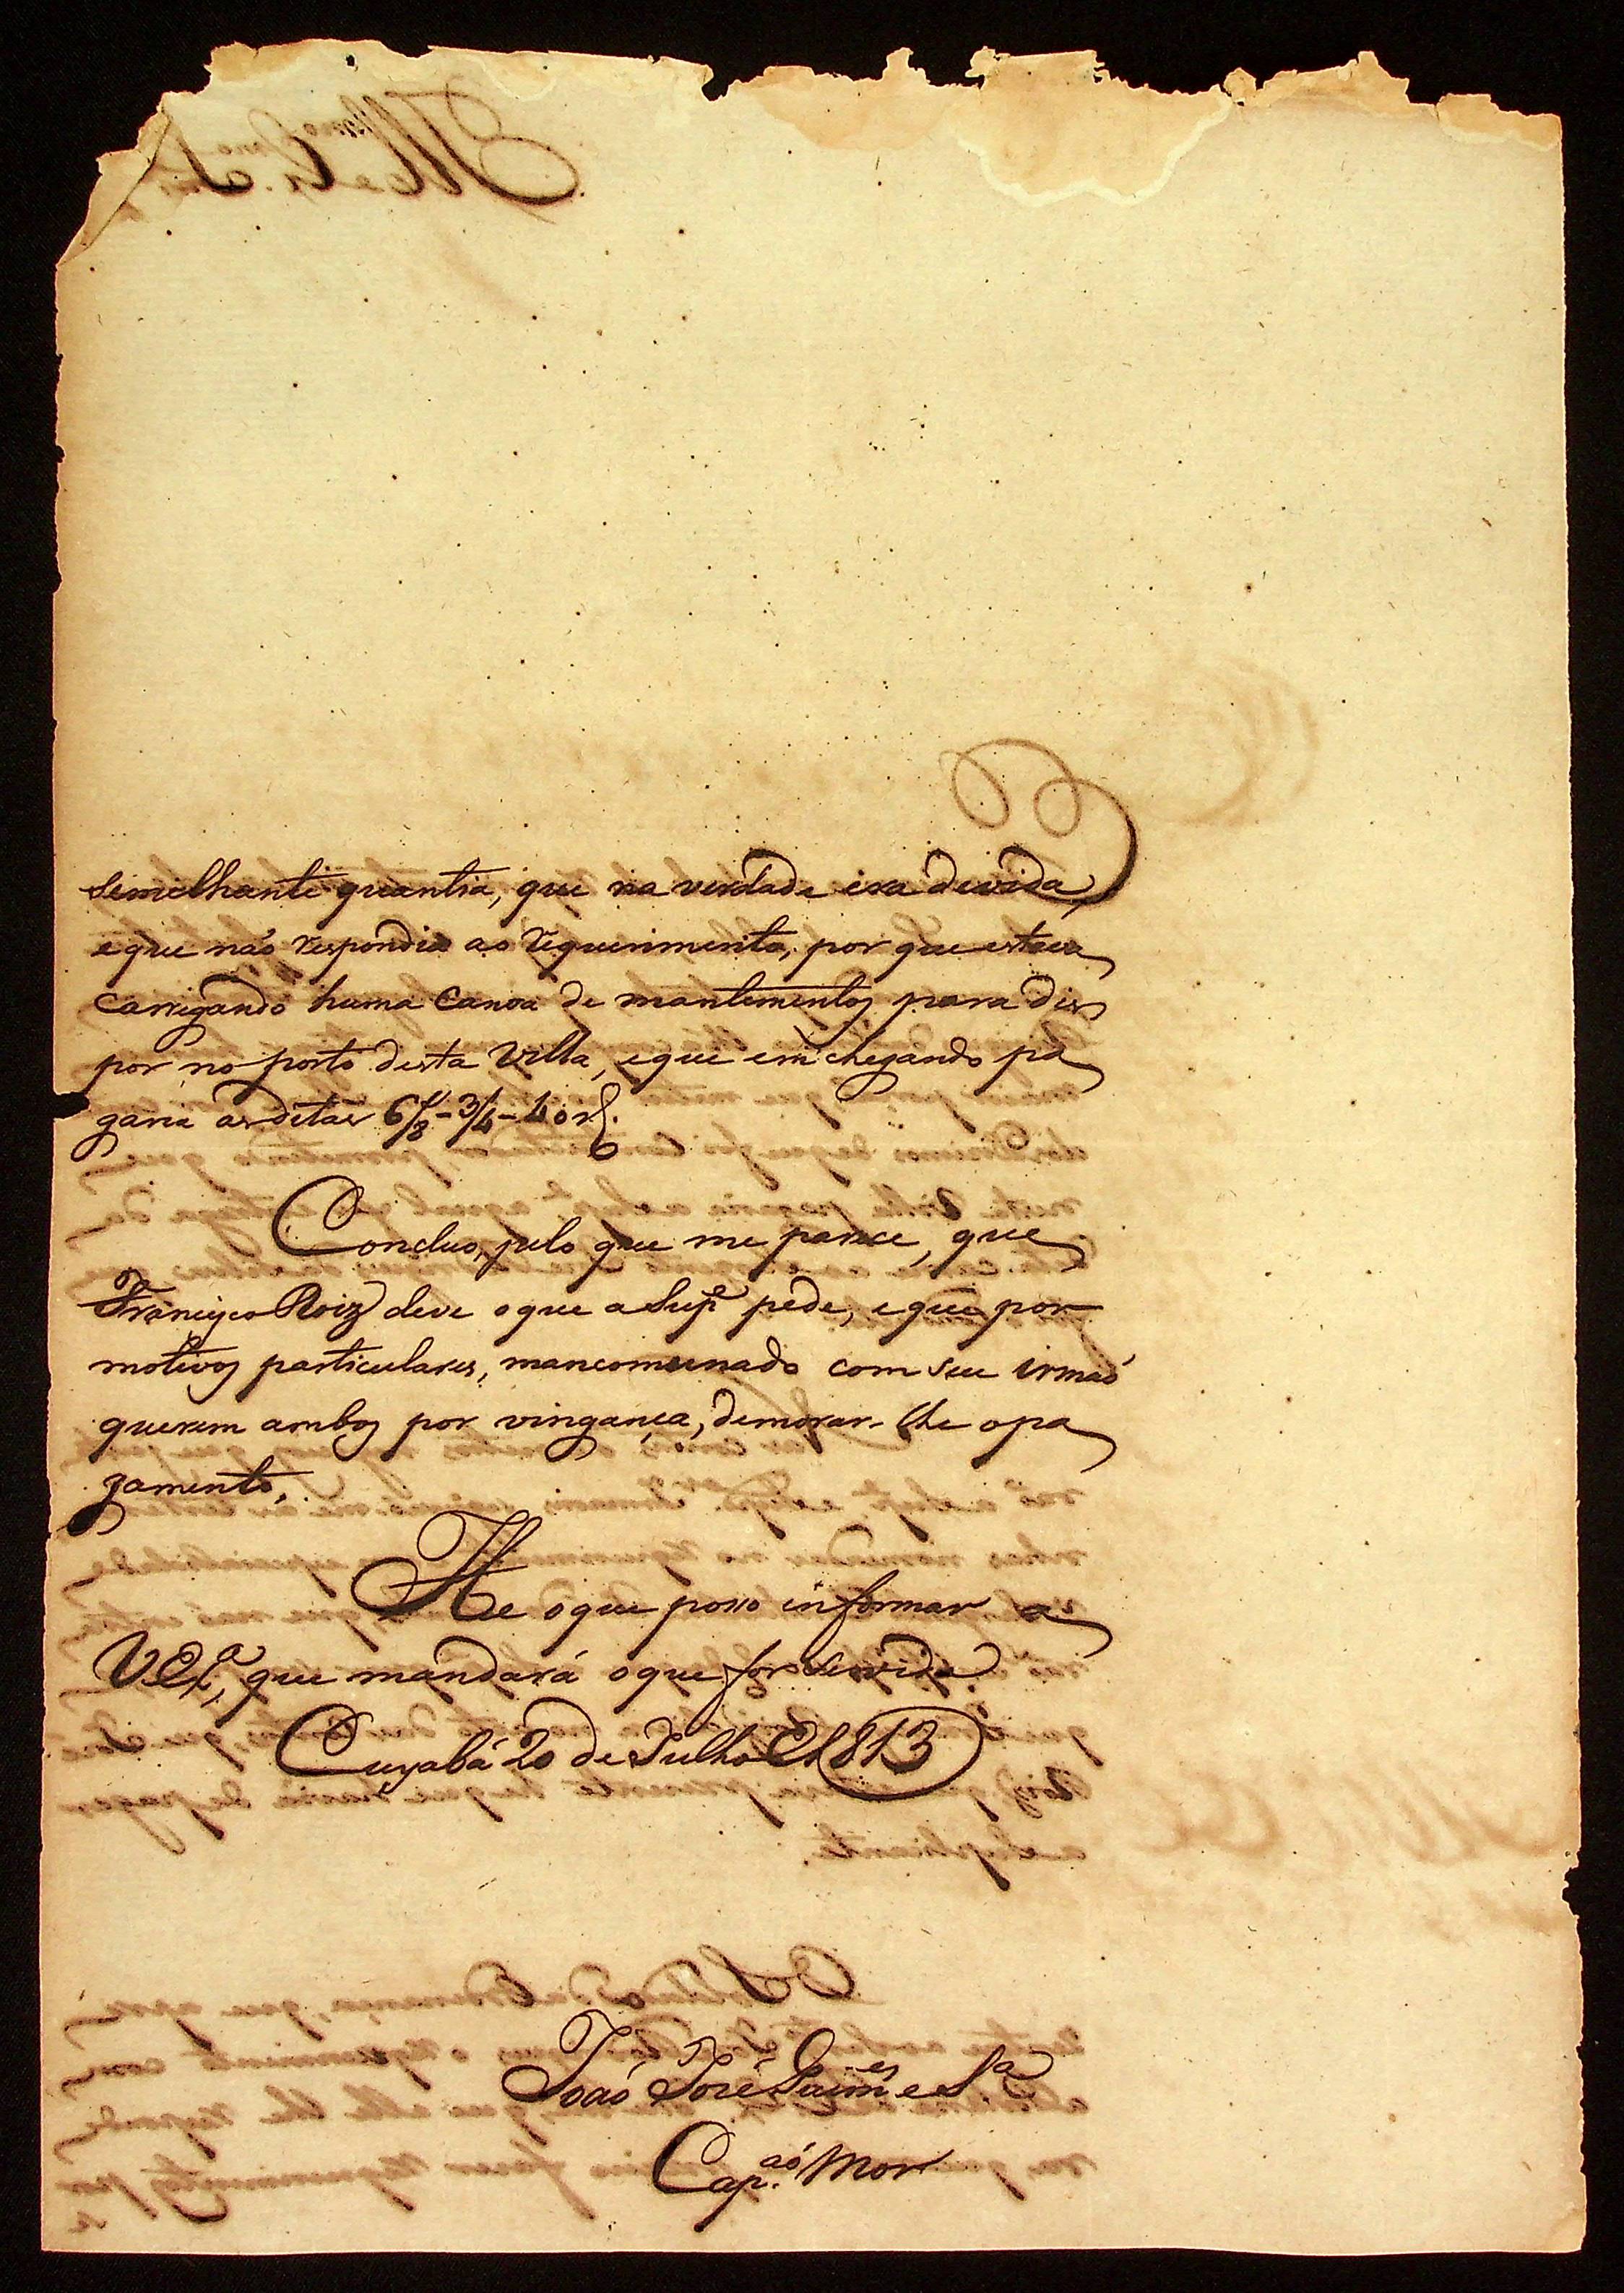 semelhante quantia, que na verdade era devida,
e que naó respondia ao Requerimento, por que estava
carregando huma Canoa de mantimentos para dis
por no porto desta Villa, e que em chegando pa
garia as ditas 6/8-3/4-4 o rs.
Concluo, pelo que me parece, que
Francisco Roiz deve o que a Sup.e pede, e que por
motivos particulares, mancomunado com seu irmaó
querem ambos por vingança, demorar-lhe o pa
gamento.
He o que posso informar a
V.Ex.a, que mandará o que for servido.
Cuyabá 20 de Julho de 1813
Joaó José Guim.es e S.a
Cap.aó Mor